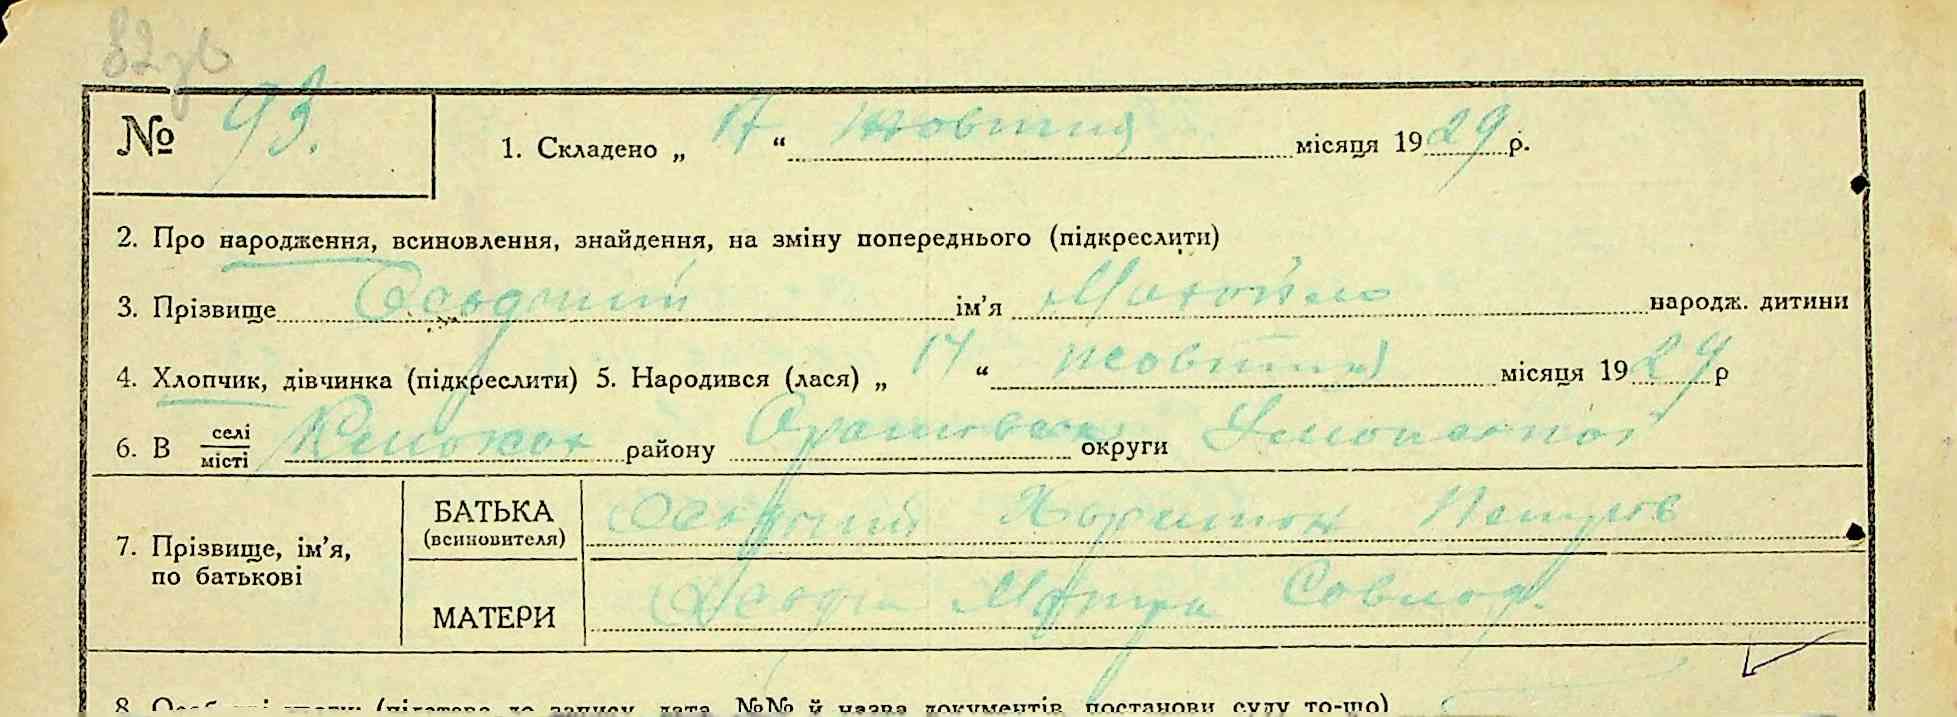 82зв
№ 93.
1. Складено „ 17 “ жовтня місяця 1929 р.
2. Про народження, всиновлення, знайдення, на зміну попереднього (підкреслити)
3. Прізвище Осьодчий ім’я Михойло народж. дитини
4. Хлопчик, дівчинка (підкреслити) 5. Народився (лася) „ 14 “ жовтня місяця 1929 р
6. В селі місті району округи Уманської
7. Прізвище, ім’я, по батькові
БАТЬКА (всиновителя) Харитон Петров
МАТЕРИ Мотря
8. (підстава до запису, дата, №№ й назва документів, постанови суду то-що)